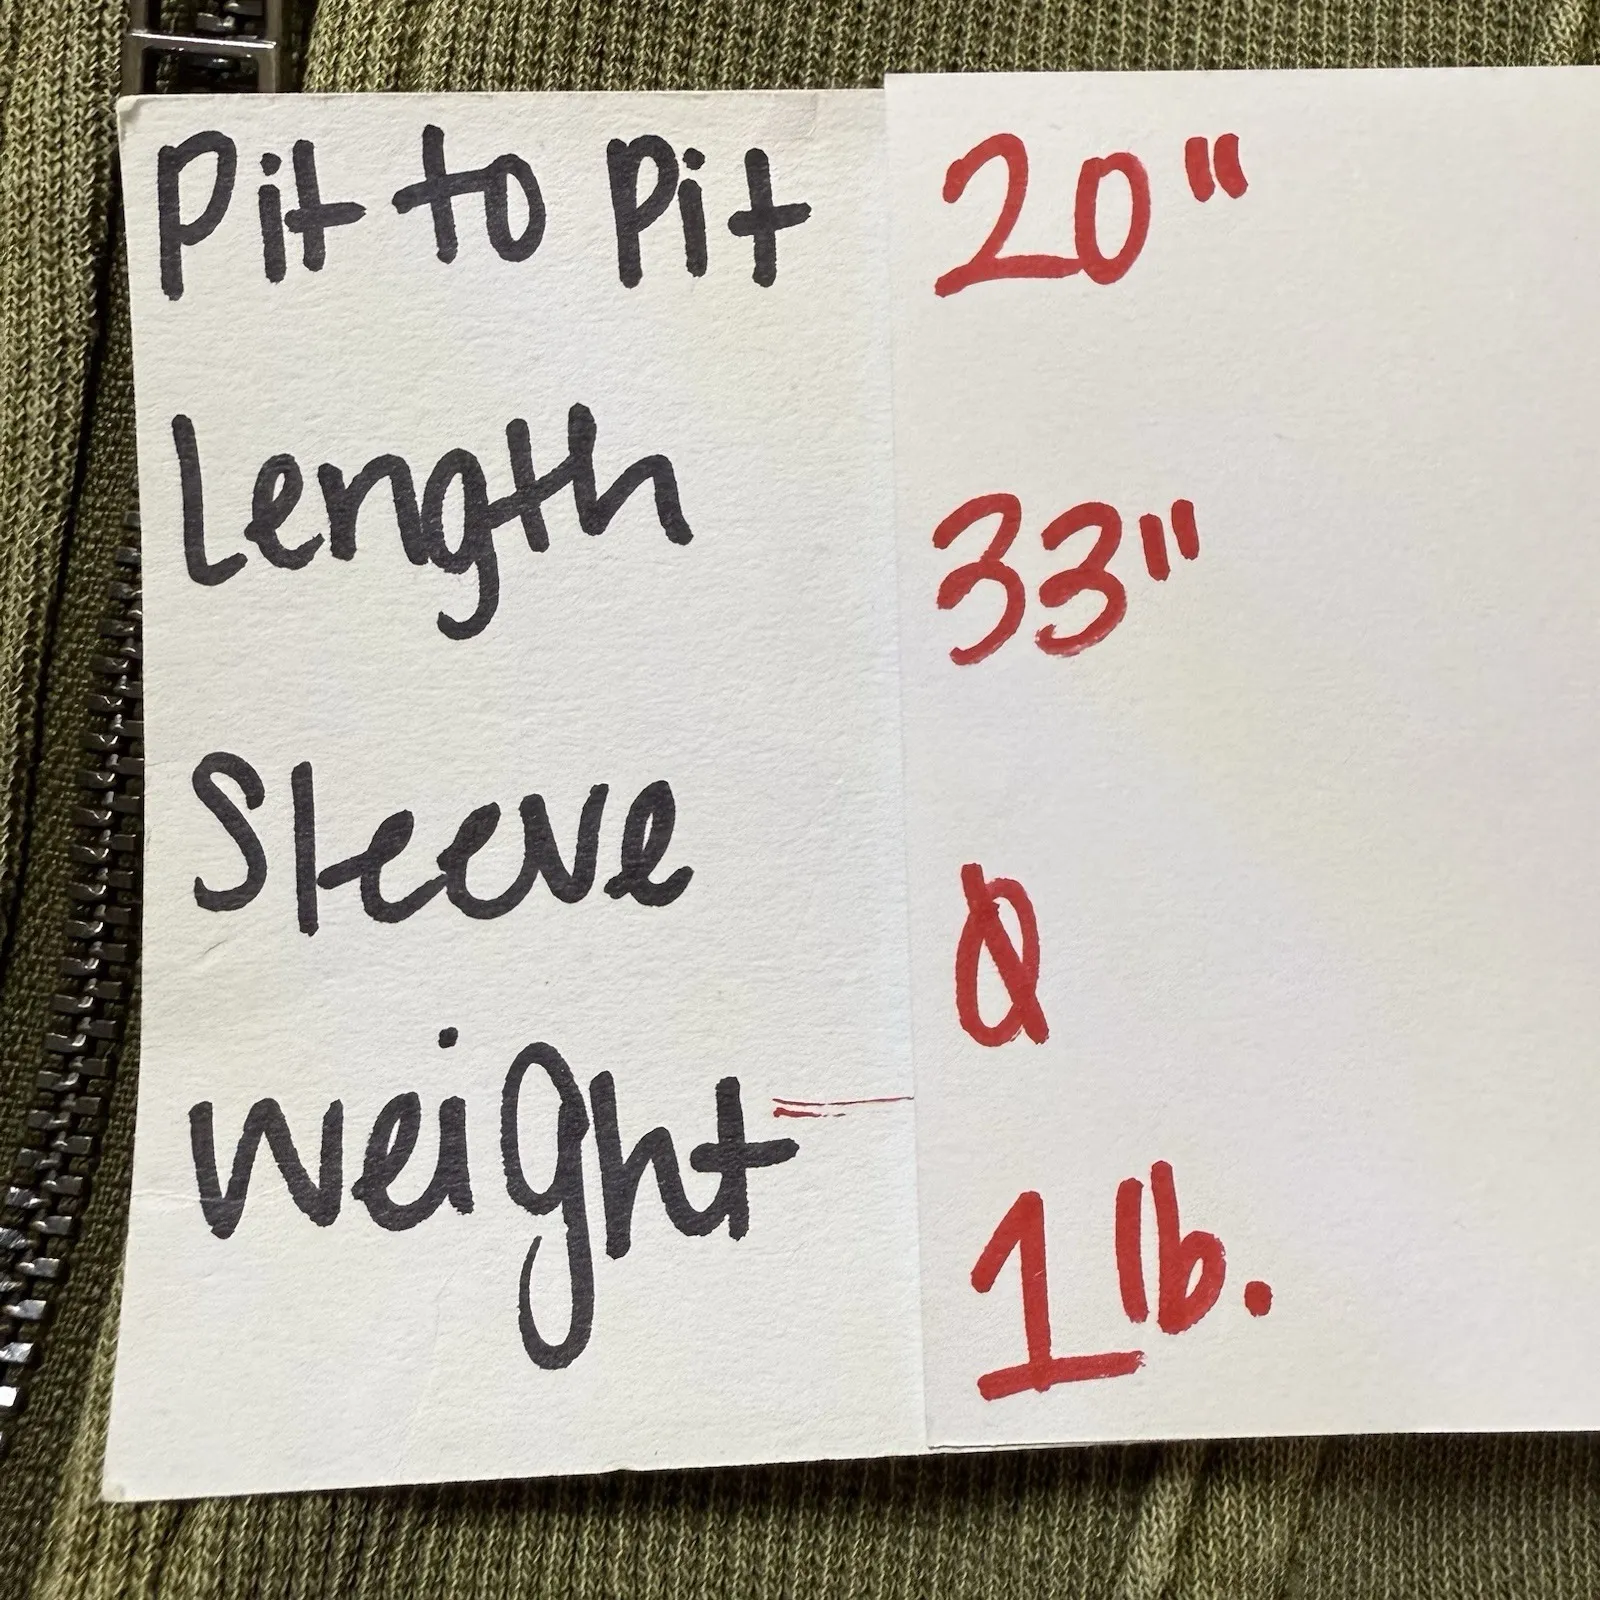 Pit to Pit 20"
Length 33"
Sleeve Ø
Weight 1 lb.